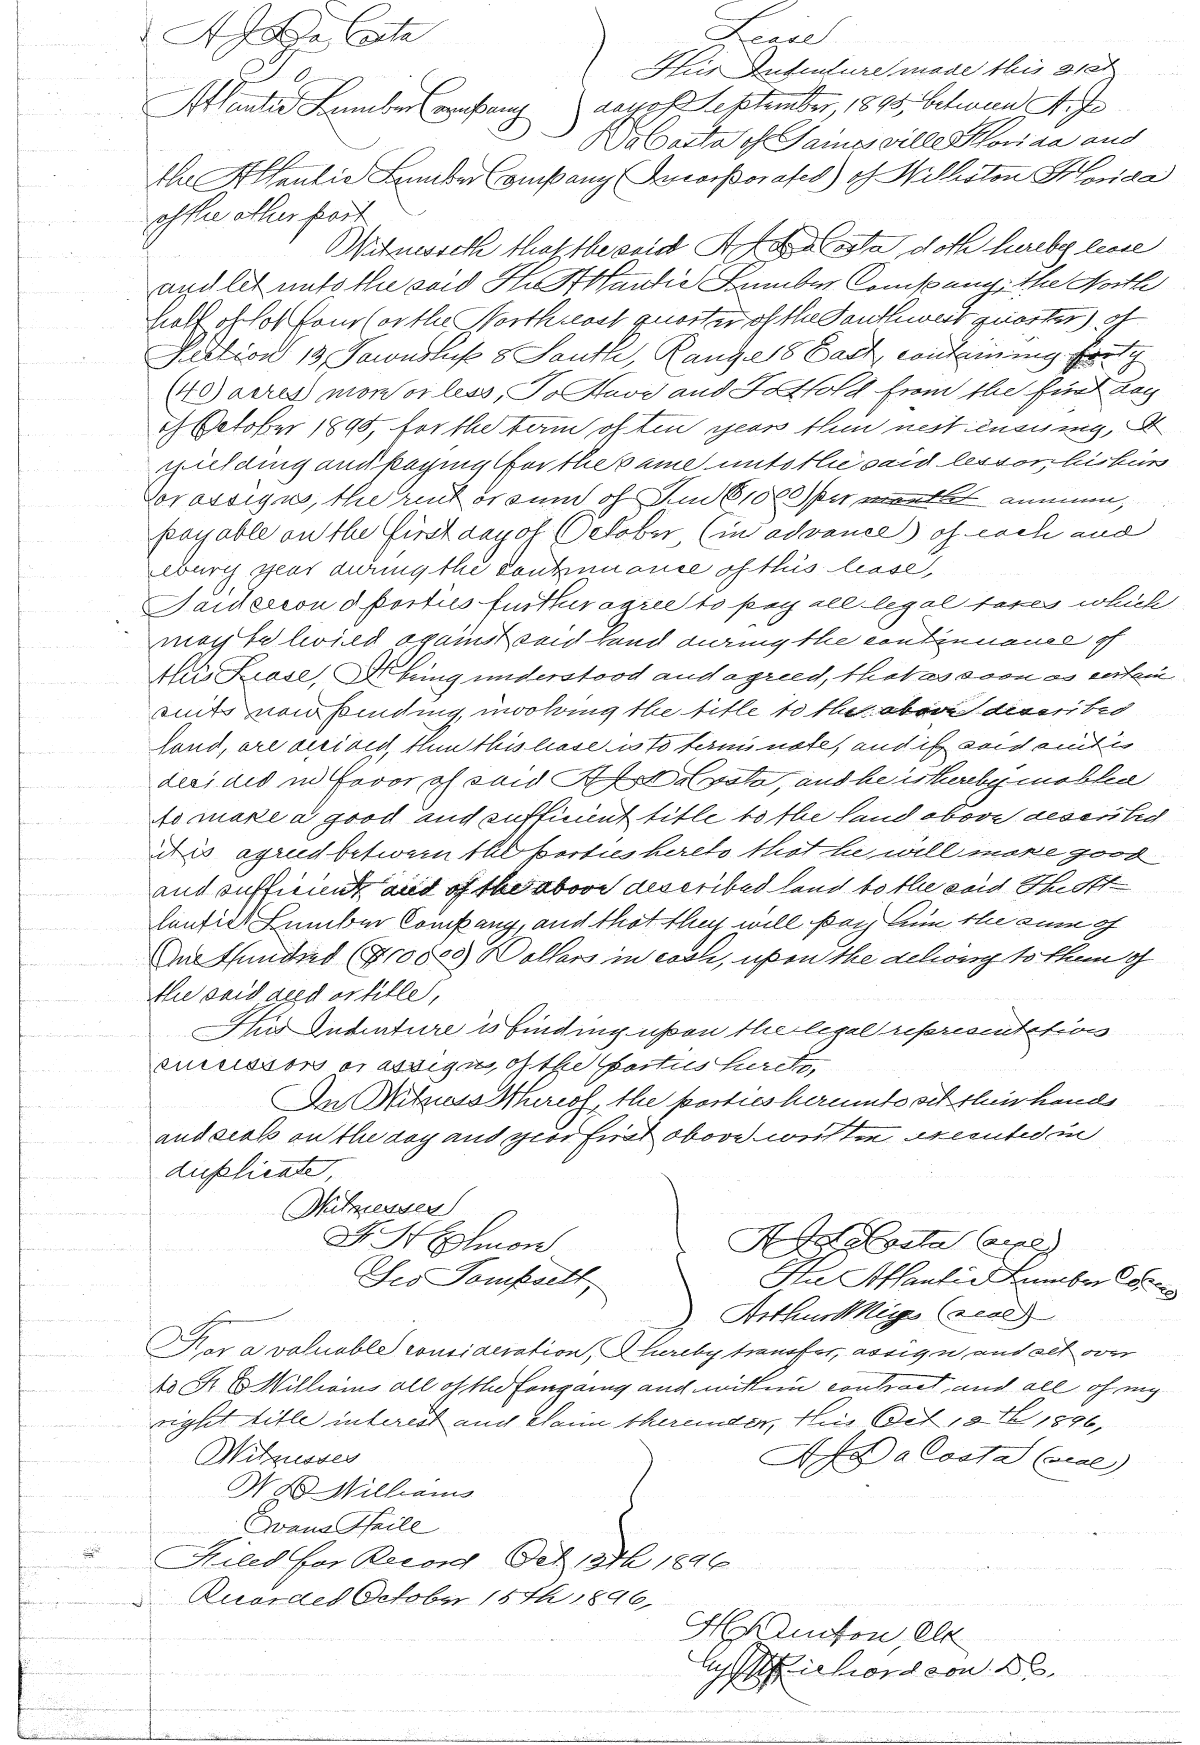 A J Da Costa
Lease
This Indenture made this 21st
Atlantic Lumber Company
day of September, 1895, between A. J.
DaCosta of Gainesville Florida and
the Atlantic Lumber Company (Incorporated) of Williston Florida
of the other part
Witnesseth that the said A J DaCosta doth hereby lease
and let unto the said The Atlantic Lumber Company; the North
half of lot four (or the Northeast quarter of the Southwest quarter) of
Section 13, Township 8 South, Range 18 East, containing forty
(40) acres more or less, To Have and To Hold from the first day
of October 1895, for the term of ten years then next ensuing,
yielding and paying for the same unto the said lessor, his heirs
or assigns, the rent or sum of Ten ($1000) per month annum,
payable on the first day of October, (in advance) of each and
every year during the continuance of this lease,
Said second parties further agree to pay all legal taxes which
may be levied against said land during the continuance of
this Lease, It being understood and agreed, that as soon as certain
suits now pending, involving the title to the above described
land, are decided, then this lease is to terminate, and if said suit is
decided in favor of said A J DaCosta, and he is thereby enabled
to make a good and sufficient title to the land above described
it is agreed between the parties hereto that he will make good
and sufficient deed of the above described land to the said The At-
lantic Lumber Company, and that they will pay him the sum of
One Hundred ($10000) Dollars in cash, upon the delivery to them of
the said deed or title,
This Indenture is binding upon the legal representatives
successors or assigns, of the parties hereto,
In Witness Whereof, the parties hereunto set their hands
and seals on the day and year first above written executed in
duplicate,
Witnesses
F. H Elmore
A J DaCosta (seal)
Geo Tompsett,
The Atlantic Lumber Co,
Arthur Migs (seal)
For a valuable consideration, I hereby transfer, assign, and set over
to H E Williams all of the foregoing and within contract, and all of my
right title interest and claim thereunder, this Oct 12th 1896,
Witnesses
A J Da Costa (seal)
W D Williams
Evans Haile
Filed for Record Oct 13th 1896
Recorded October 15th 1896,
Clk
by Richardson D C.